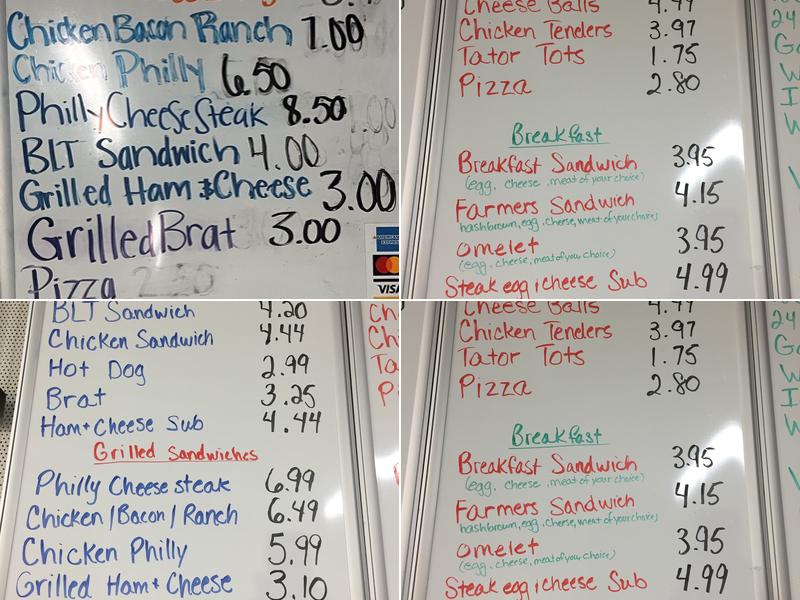 Chicken Bacon Ranch 7.00
Chicken Philly 6.50
Philly Cheese Steak 8.50
BLT Sandwich 4.00
Grilled Ham & Cheese 3.00
Grilled Brat 3.00
Pizza
AMERICAN EXPRESS
VISA
Cheese Balls 4.99
Chicken Tenders 3.97
Tator Tots 1.75
Pizza 2.80
Breakfast
Breakfast Sandwich 3.95
(egg, cheese, meat of your choice)
Farmers Sandwich 4.15
hashbrown, egg, cheese, meat of your choice)
omelet 3.95
(egg, cheese, meat of your choice)
Steak egg & cheese Sub 4.99
24
BLT Sandwich 4.20
Chicken Sandwich 4.44
Hot Dog 2.99
Brat 3.25
Ham + Cheese Sub 4.44
Grilled Sandwiches
Philly Cheese steak 6.99
Chicken / Bacon / Ranch 6.49
Chicken Philly 5.99
Grilled Ham + Cheese 3.10
Cheese Balls 4.99
Chicken Tenders 3.97
Tator Tots 1.75
Pizza 2.80
Breakfast
Breakfast Sandwich 3.95
(egg, cheese, meat of your choice)
Farmers Sandwich 4.15
hashbrown, egg, cheese, meat of your choice)
omelet 3.95
(egg, cheese, meat of your choice)
Steak egg & cheese Sub 4.99
24